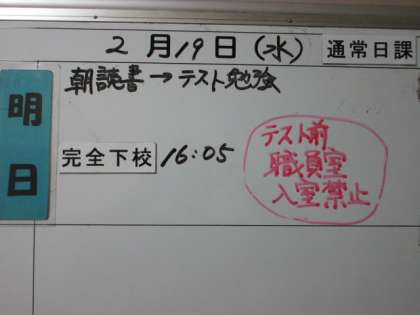 2月19日(水) 通常日課
明日
朝読書→テスト勉強
完全下校 16:05
テスト前
職員室
入室禁止